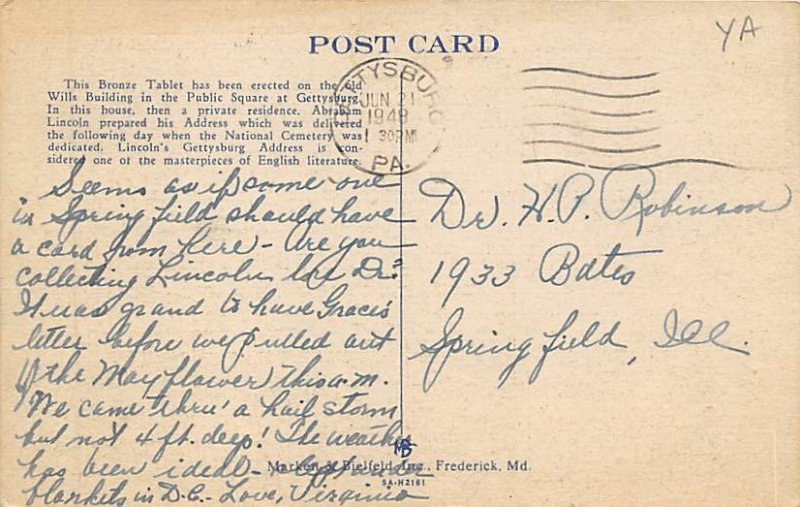 POST CARD
YA
This Bronze Tablet has been erected on the old
Wills Building in the Public Square at Gettysburg.
In this house, then a private residence, Abraham
Lincoln prepared his Address which was delivered
the following day when the National Cemetery was
dedicated. Lincoln's Gettysburg Address is con-
sidered one of the masterpieces of English literature.
GETTYSBURG
JUN 21
1948
1 30PM
PA.
Seems as if some one
in Springfield should have
a card from here - Are you
collecting Lincoln lore Dr.?
It was grand to have Grace's
letter before we pulled out
(the Mayflower) this a.m.
We came thru' a hail storm
but not 4 ft. deep! The weather
has been ideal -
blankets in D.C. - Love, Virginia
Dr. H. P. Robinson
1933 Bates
Springfield, Ill.
MB
Marken & Bielfeld, Inc., Frederick, Md.
5A-H2161